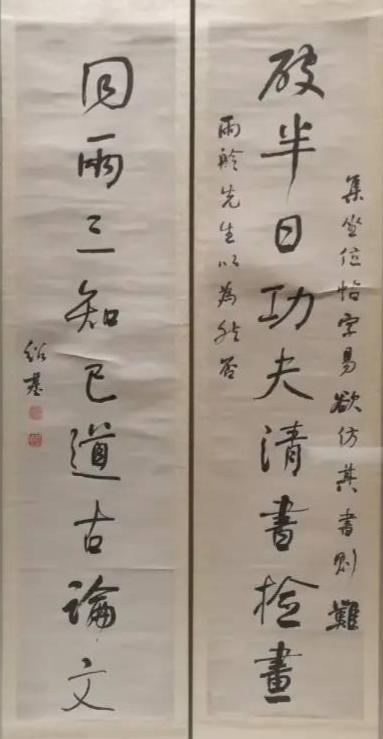 集坐位帖字易欲仿其書則難
破半日功夫清書檢畫
雨舲先生以為然否
同兩三知己道古論文
紹基